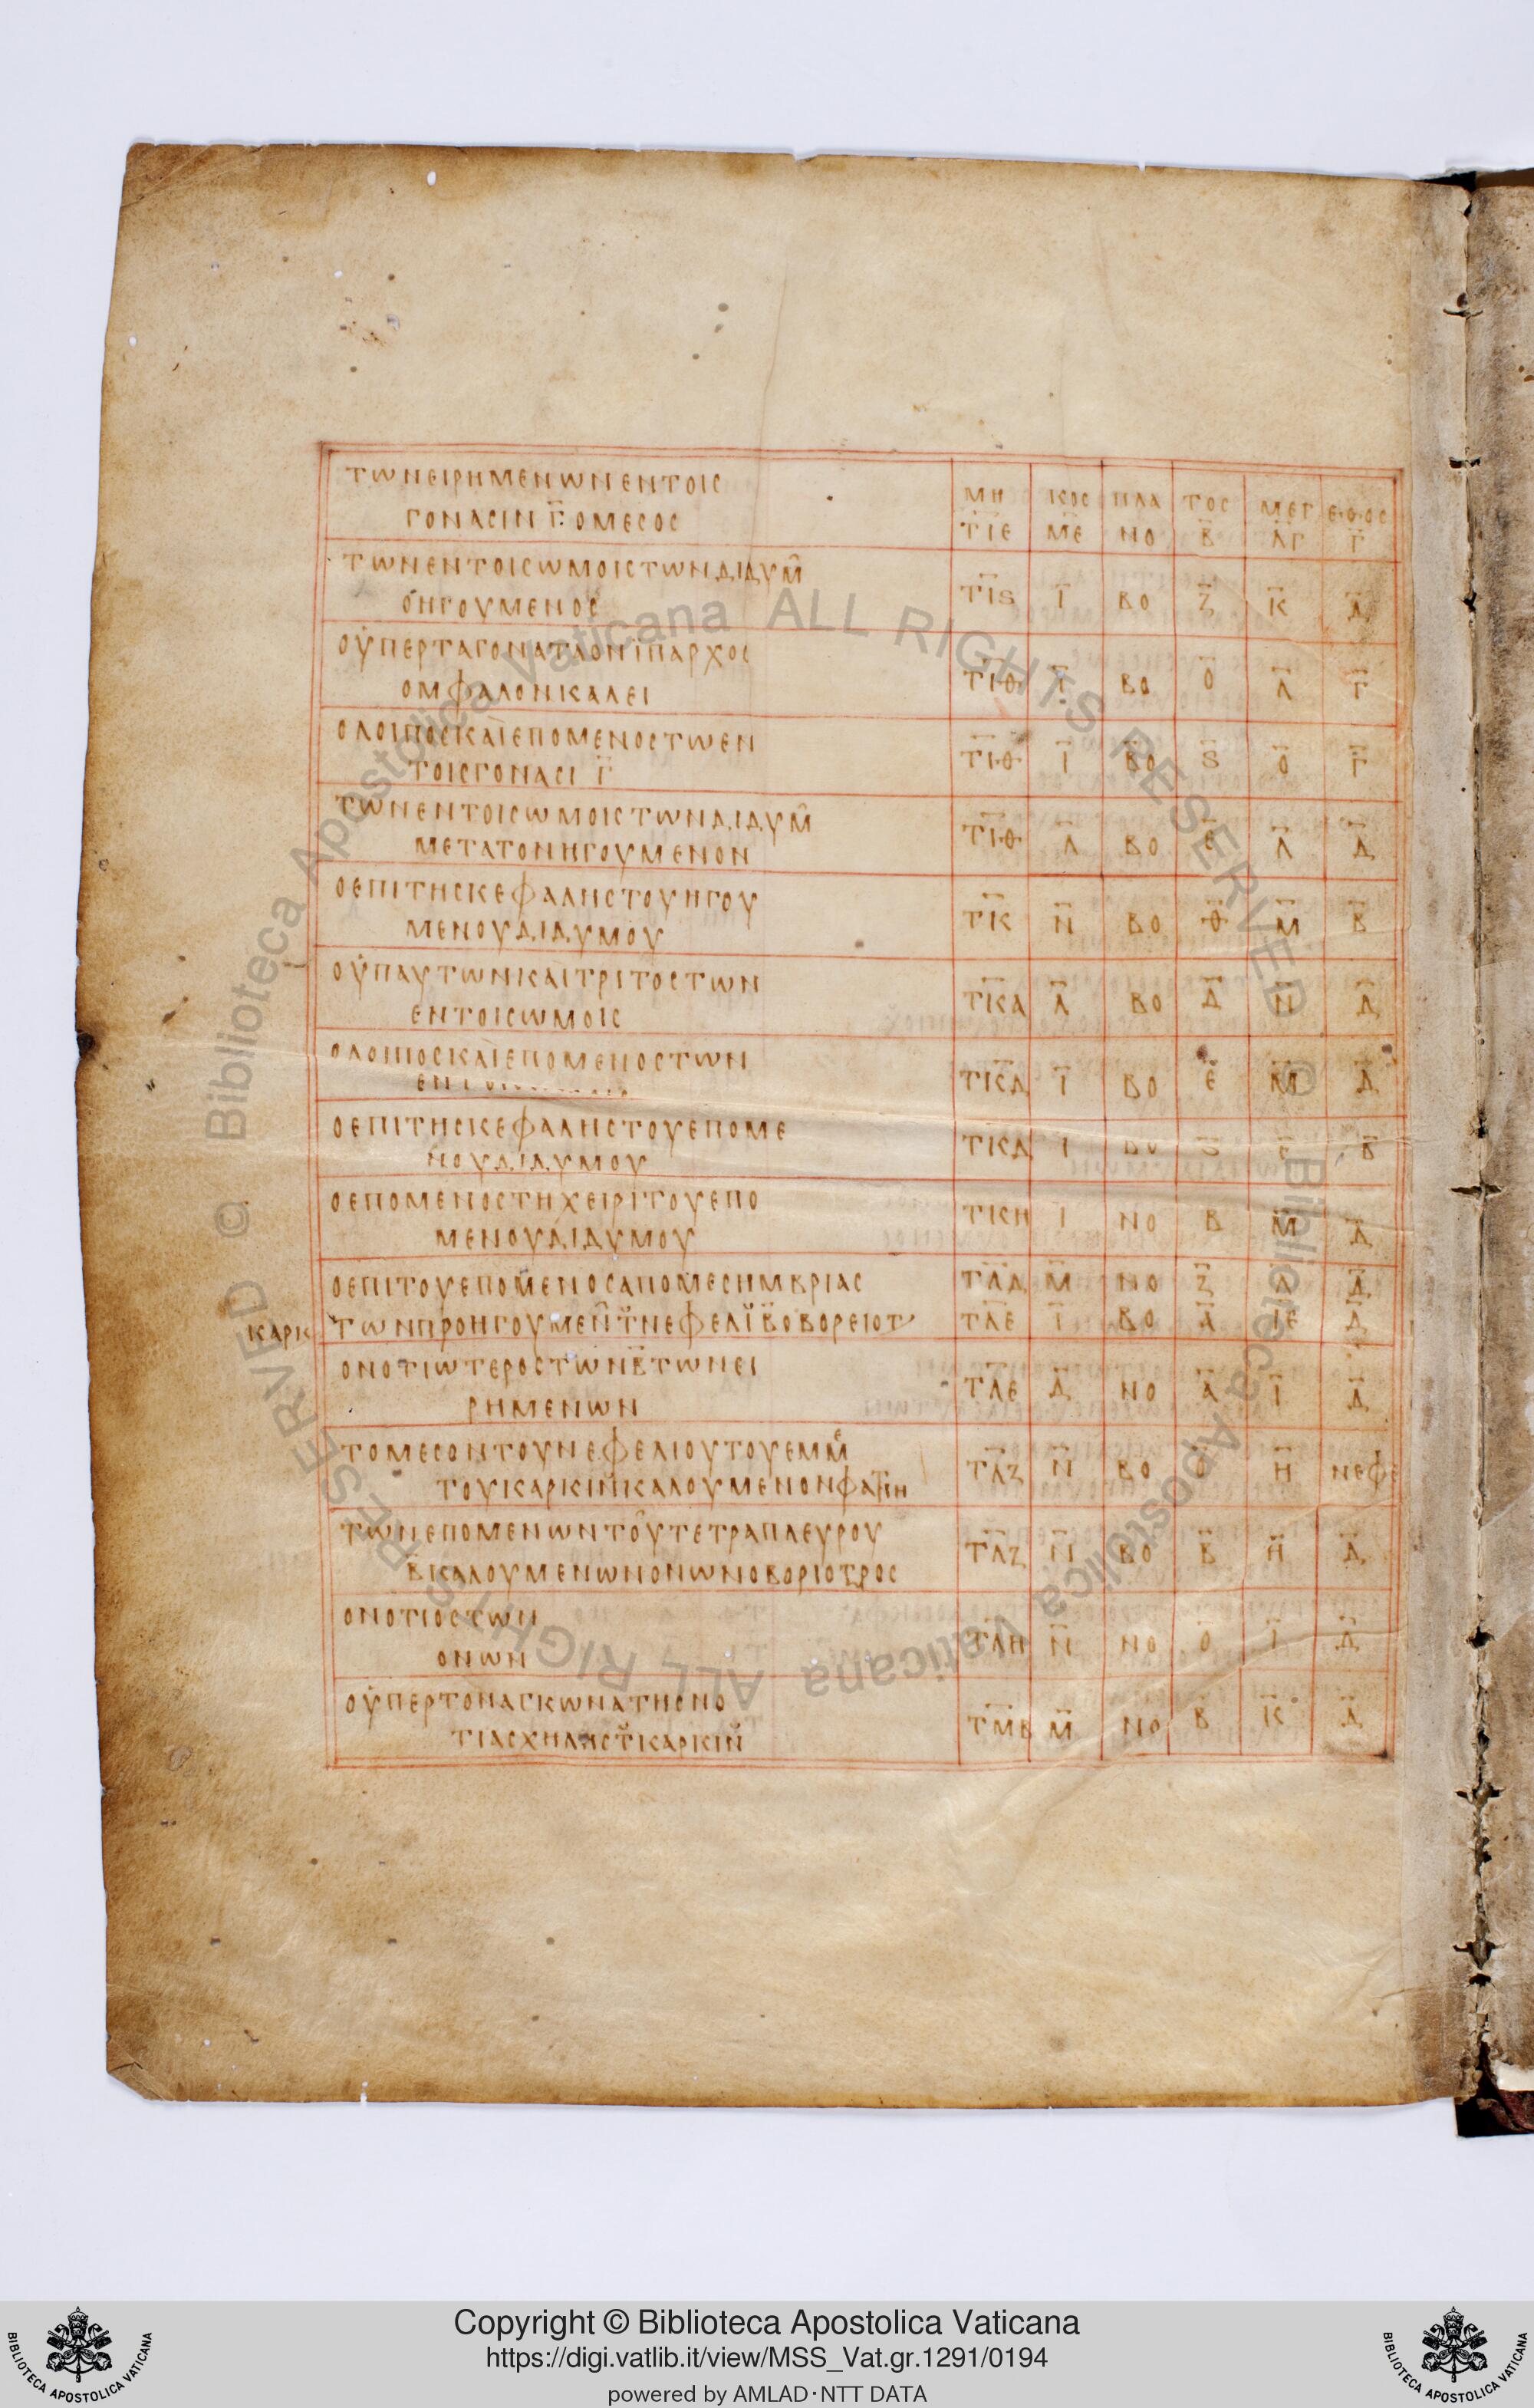 ΤΩΝΕΙΡΗΜΕΝΩΝΕΝΤΟΙC
ΓΟΝΑCΙΝ Γ ΟΜΕCΟC
ΜΗ ΚΟC ΠΛΑ ΤΟC ΜΕΓ ΕΘΟC
ΤΙΕ ΜΕ ΝΟ Β ΛΓ Γ
ΤΩΝΕΝΤΟΙCΩΜΟΙCΤΩΝΔΙΔΥΜ
ΟΗΓΟΥΜΕΝΟC
ΤΙS Ι ΒΟ Ζ Κ Δ
ΟΥΠΕΡΤΑΓΟΝΑΤΛΟΝΙΠΑΡΧΟC
ΟΜΦΑΛΟΝΚΑΛΕΙ
ΤΙΘ Ι ΒΟ Ο Λ Γ
ΟΛΟΙΠΟCΚΑΙΕΠΟΜΕΝΟCΤΩΕΝ
ΤΟΙCΓΟΝΑCΙ Γ
ΤΙΘ Ι ΒΟ S Ο Γ
ΤΩΝΕΝΤΟΙCΩΜΟΙCΤΩΝΔΙΔΥΜ
ΜΕΤΑΤΟΝΗΓΟΥΜΕΝΟΝ
ΤΙΘ Λ ΒΟ Ε Λ Δ
ΟΕΠΙΤΗCΚΕΦΑΛΗCΤΟΥΗΓΟΥ
ΜΕΝΟΥΔΙΔΥΜΟΥ
ΤΚ Ν ΒΟ Θ Μ Β
ΟΥΠΑΥΤΩΝΚΑΙΤΡΙΤΟCΤΩΝ
ΕΝΤΟΙCΩΜΟΙC
ΤΚΑ Λ ΒΟ Δ Ν Δ
ΟΛΟΙΠΟCΚΑΙΕΠΟΜΕΝΟCΤΩΝ
ΤΚΔ Ι ΒΟ Ε Μ Δ
ΟΕΠΙΤΗCΚΕΦΑΛΗCΤΟΥΕΠΟΜΕ
ΝΟΥΔΙΔΥΜΟΥ
ΤΚΔ Ι ΒΟ Β
ΟΕΠΟΜΕΝΟCΤΗΧΕΙΡΙΤΟΥΕΠΟ
ΜΕΝΟΥΔΙΔΥΜΟΥ
ΤΚΗ Ι ΝΟ Β Μ Δ
ΟΕΠΙΤΟΥΕΠΟΜΕΝΟCΑΠΟΜΕCΗΜΒΡΙΑC
ΤΛΔ Μ ΝΟ Ζ Λ Δ
ΚΑΡΚ ΤΩΝΠΡΟΗΓΟΥΜΕΝΤΝΕΦΕΛΙΒΟΒΟΡΕΙΟΤ
ΤΛΕ Ι ΒΟ Α ΙΕ Δ
ΟΝΟΤΙΩΤΕΡΟCΤΩΝΒΤΩΝΕΙ
ΡΗΜΕΝΩΝ
ΤΛΕ Δ ΝΟ Α Ι Δ
ΤΟΜΕCΟΝΤΟΥΝΕΦΕΛΙΟΥΤΟΥΕΜΜΕ
ΤΟΥΚΑΡΚΙΝΚΑΛΟΥΜΕΝΟΝΦΑΤΝΗ
ΤΛΖ Ν ΒΟ Ο Η ΝΕΦΕ
ΤΩΝΕΠΟΜΕΝΩΝΤΟΥΤΕΤΡΑΠΛΕΥΡΟΥ
ΒΚΑΛΟΥΜΕΝΩΝΟΝΩΝΟΒΟΡΙΟΤΡΟC
ΤΛΖ Ν ΒΟ Β Η Δ
ΟΝΟΤΙΟCΤΩΝ
ΟΝΩΝ
ΤΛΗ Ν ΝΟ Ο Ι Δ
ΟΥΠΕΡΤΟΝΑΓΚΩΝΑΤΗCΝΟ
ΤΙΑCΧΗΛΗCΤΚΑΡΚΙΝ
ΤΜΒ Μ ΝΟ Β Κ Δ
© Biblioteca Apostolica Vaticana ALL RIGHTS RESERVED © Biblioteca Apostolica Vaticana ALL RIGHTS RESERVED
Copyright © Biblioteca Apostolica Vaticana
https://digi.vatlib.it/view/MSS_Vat.gr.1291/0194
powered by AMLAD·NTT DATA
BIBLIOTECA APOSTOLICA VATICANA
BIBLIOTECA APOSTOLICA VATICANA